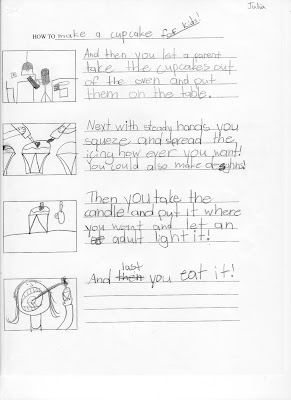 Julia
HOW TO make a cupcake for kids!
And then you let a parent
take the cupcakes out
of the oven and put
them on the table.
Next with steady hands you
squeeze and spread the
icing how ever you want!
You could also make a
Then you take the
candle and put it where
you want and let an
adult light it!
And last then you eat it!